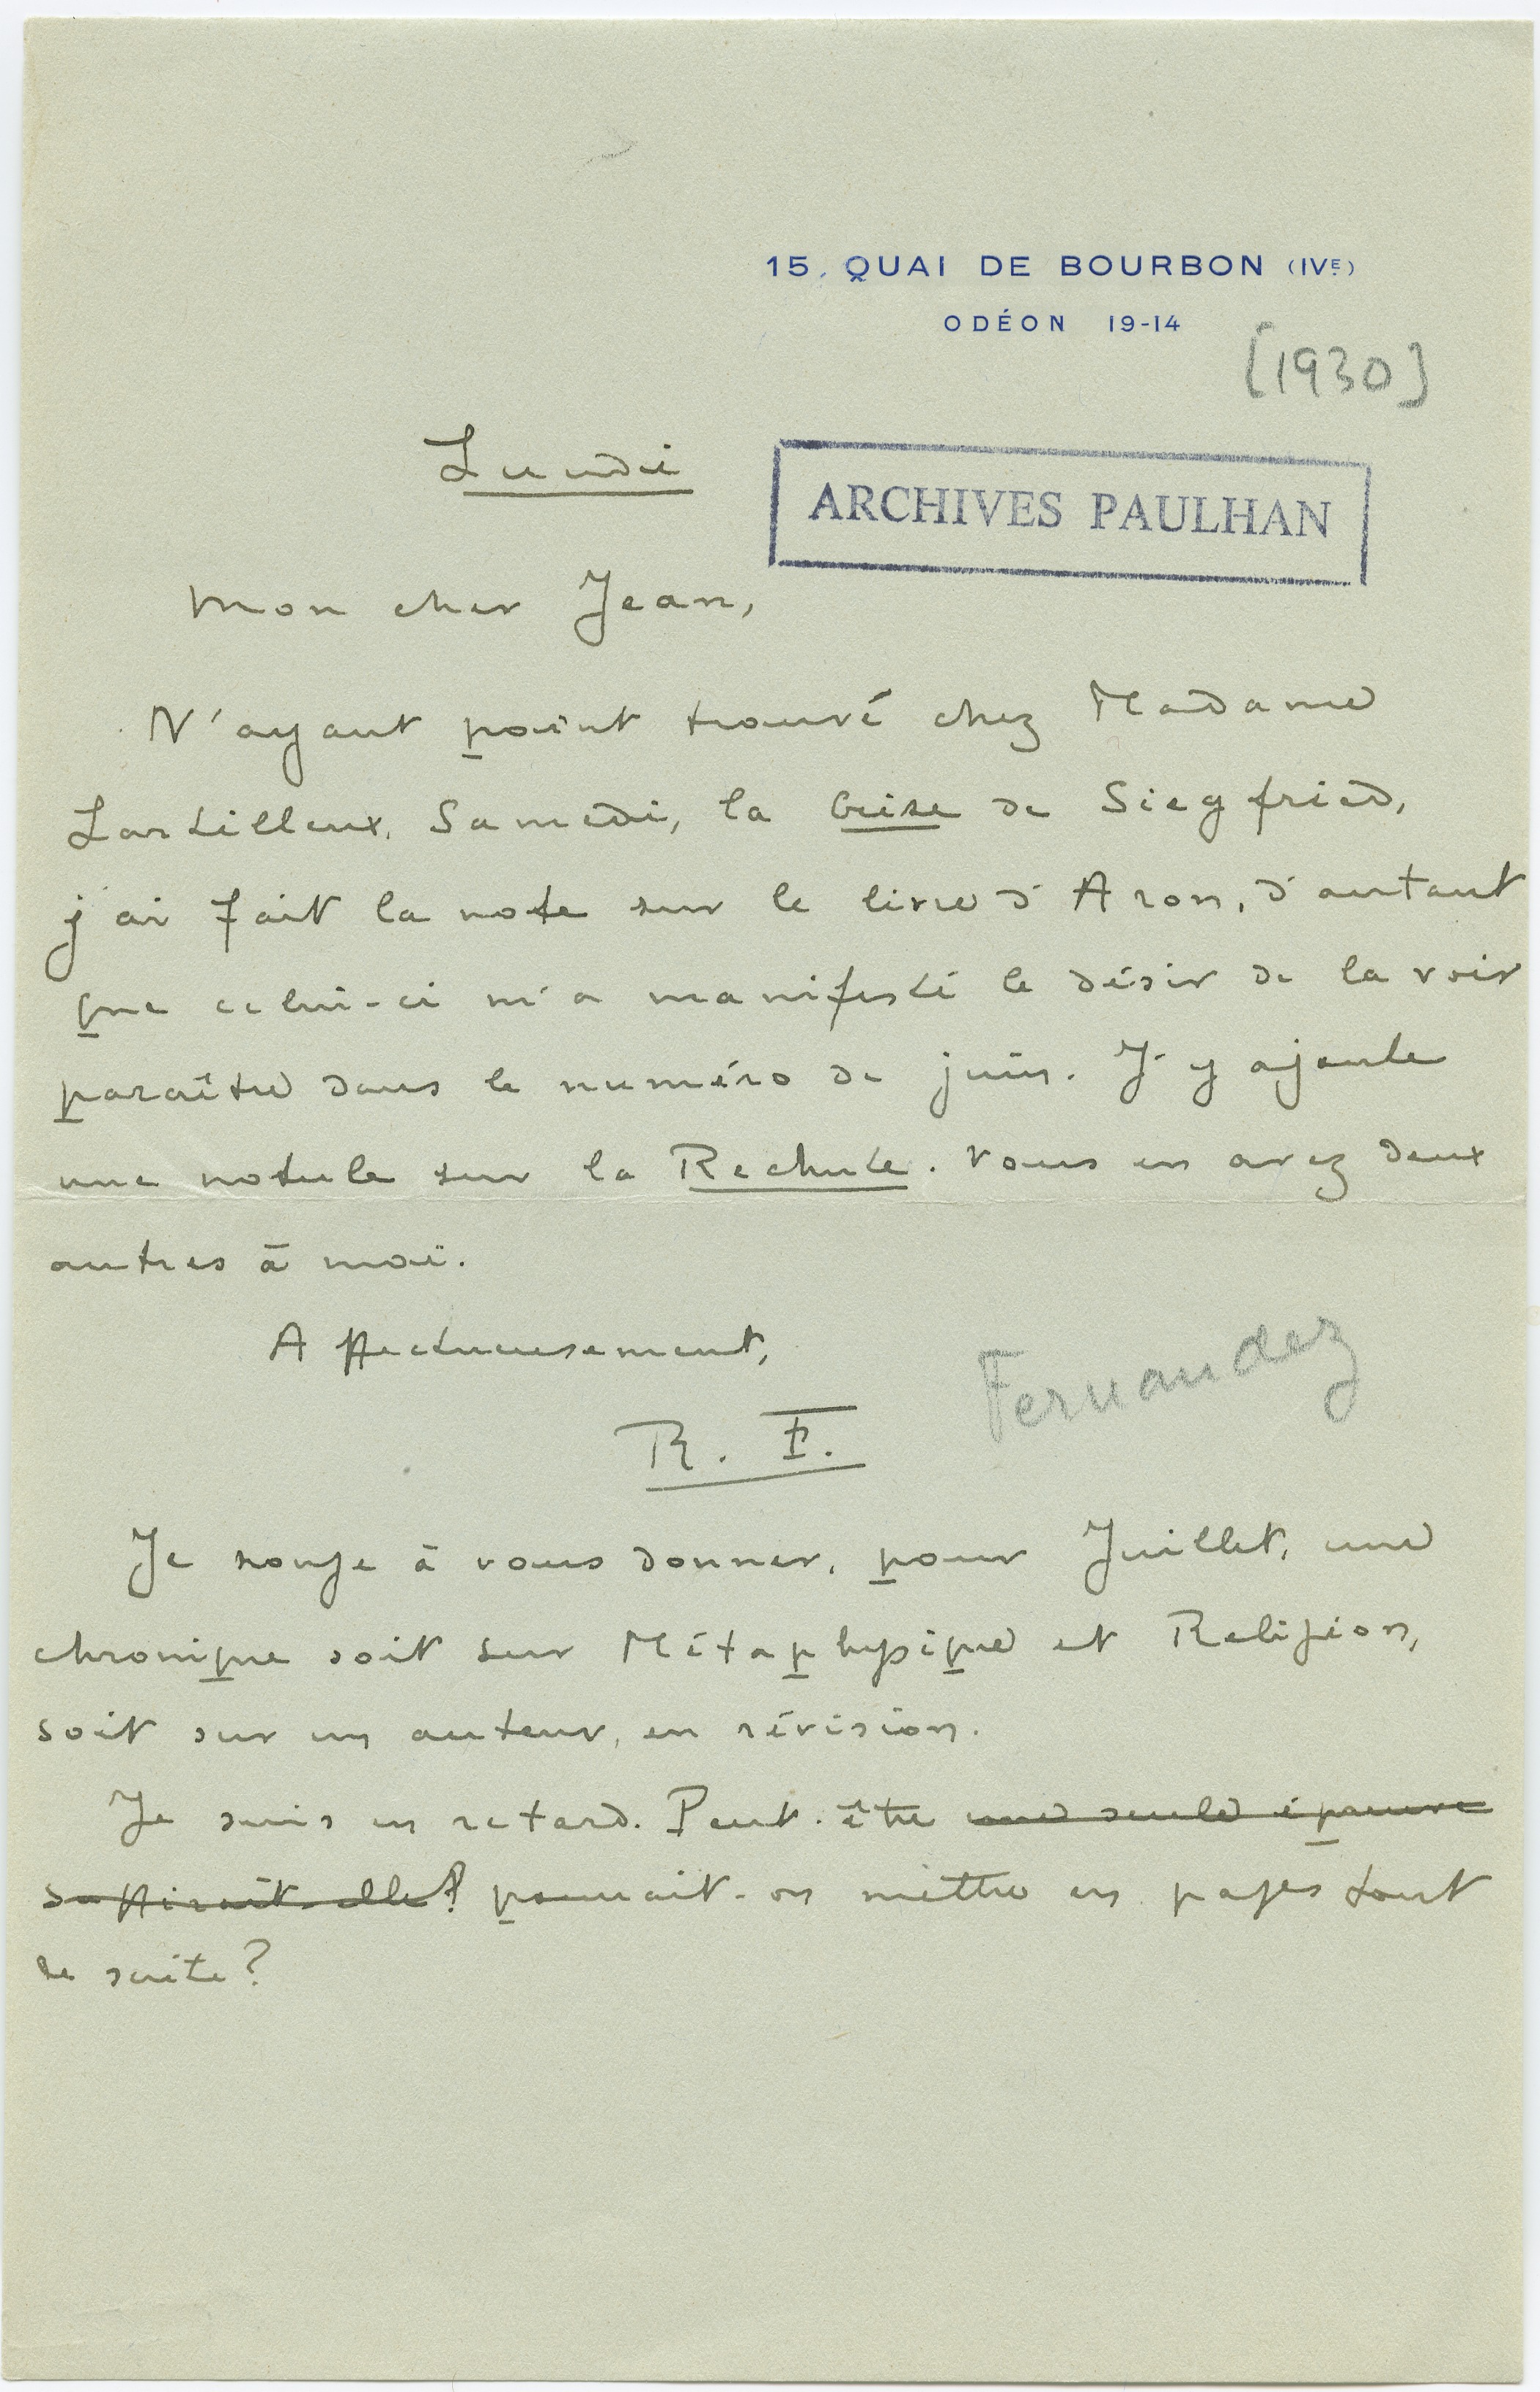 15, QUAI DE BOURBON (IVE)
ODÉON 19-14
[1930]
Lundi
ARCHIVES PAULHAN
Mon cher Jean,
N'ayant point trouvé chez Madame
Lartilleux, Samedi, la Crise de Siegfried,
j'ai fait la note sur le livre d'Aron, d'autant
que celui-ci m'a manifesté le désir de la voir
paraître dans le numéro de juin. J'y ajoute
une notule sur la Rechute. Vous en avez deux
autres à moi.
Affectueusement,
R. F.
Fernandez
Je songe à vous donner, pour Juillet, une
chronique soit sur Métaphysique et Religion,
soit sur un auteur, en révision.
Je suis en retard. Peut-être une seule épreuve
suffirait-elle? pourrait-on mettre en pages tout
de suite?